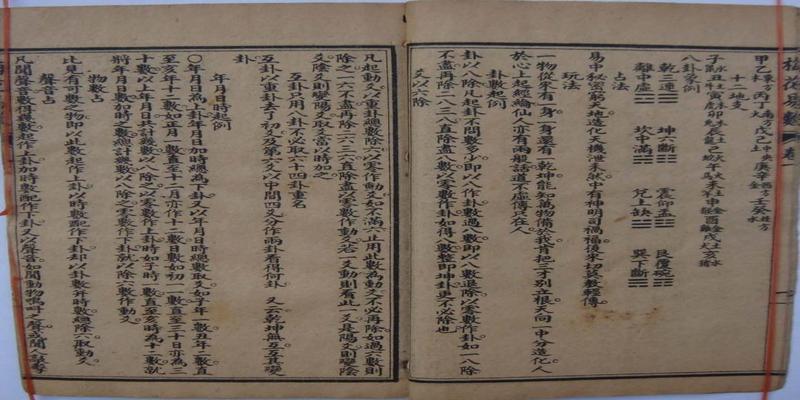 甲乙東方木丙丁南方火戊己土中央庚辛金西方壬癸北方水
十二地支
子水鼠丑土牛寅木虎卯木兔辰土龍巳火蛇午火馬未土羊申金猴酉金雞戌土犬亥水猪
八卦象例
乾三連☰ 坤六斷☷ 震仰盂☳ 艮覆碗☶
離中虛☲ 坎中滿☵ 兌上缺☱ 巽下斷☴
占法
易中秘密窮天地造化天機泄未然中有神明司禍福後來切莫教輕傳
玩法
一物從來有一身一身還有一乾坤能知萬物備於我肯把三才別立根天向一中分造化人
於心上起經綸仙人亦有兩般話道不虛傳只在人
卦數起例
卦以八除凡起卦不問數多少即以八作卦數過八數即以八數退除以零數作卦如一八除
不盡再除二八三八直除盡八數以零數作卦如得八數整即坤卦更不必除也
爻以六除
凡起動爻以重卦總數除六以零作動爻如不滿六止用此數為動爻不必再除如過六數則
除之一六不盡再除二六三六直除盡以零數作動爻若一爻動則看此一爻是陽爻則變陰
爻陰爻則變陽爻取爻當以時加之
互卦只用八卦不必取六十四卦重名
互卦以重卦去了初爻及第六爻以中間四爻分作兩卦看得何卦 又云乾坤無互互其變
卦
年月日時起例
○年月日為上卦年月日加時總為下卦又以年月日時總數取爻如子年一數丑年二數直
至亥年十二數如正月一數直至十二月亦作十二數日數如初一一數直至三十日亦為三
十數以上年月日共計幾數以八除之以零數作上卦時如子時一數直至亥時為十二數就
將年月日數加時之數總計幾數以八除之零數作下卦就以除六數作動爻
物數占
比見有可數之物即以此數起作上卦以時數配作下卦却以卦數并時數總除六取動爻
聲音占
凡聞聲音數得幾數起作上卦加時數配作下卦又以聲音如聞動物鳴叫之聲或聞人敲擊